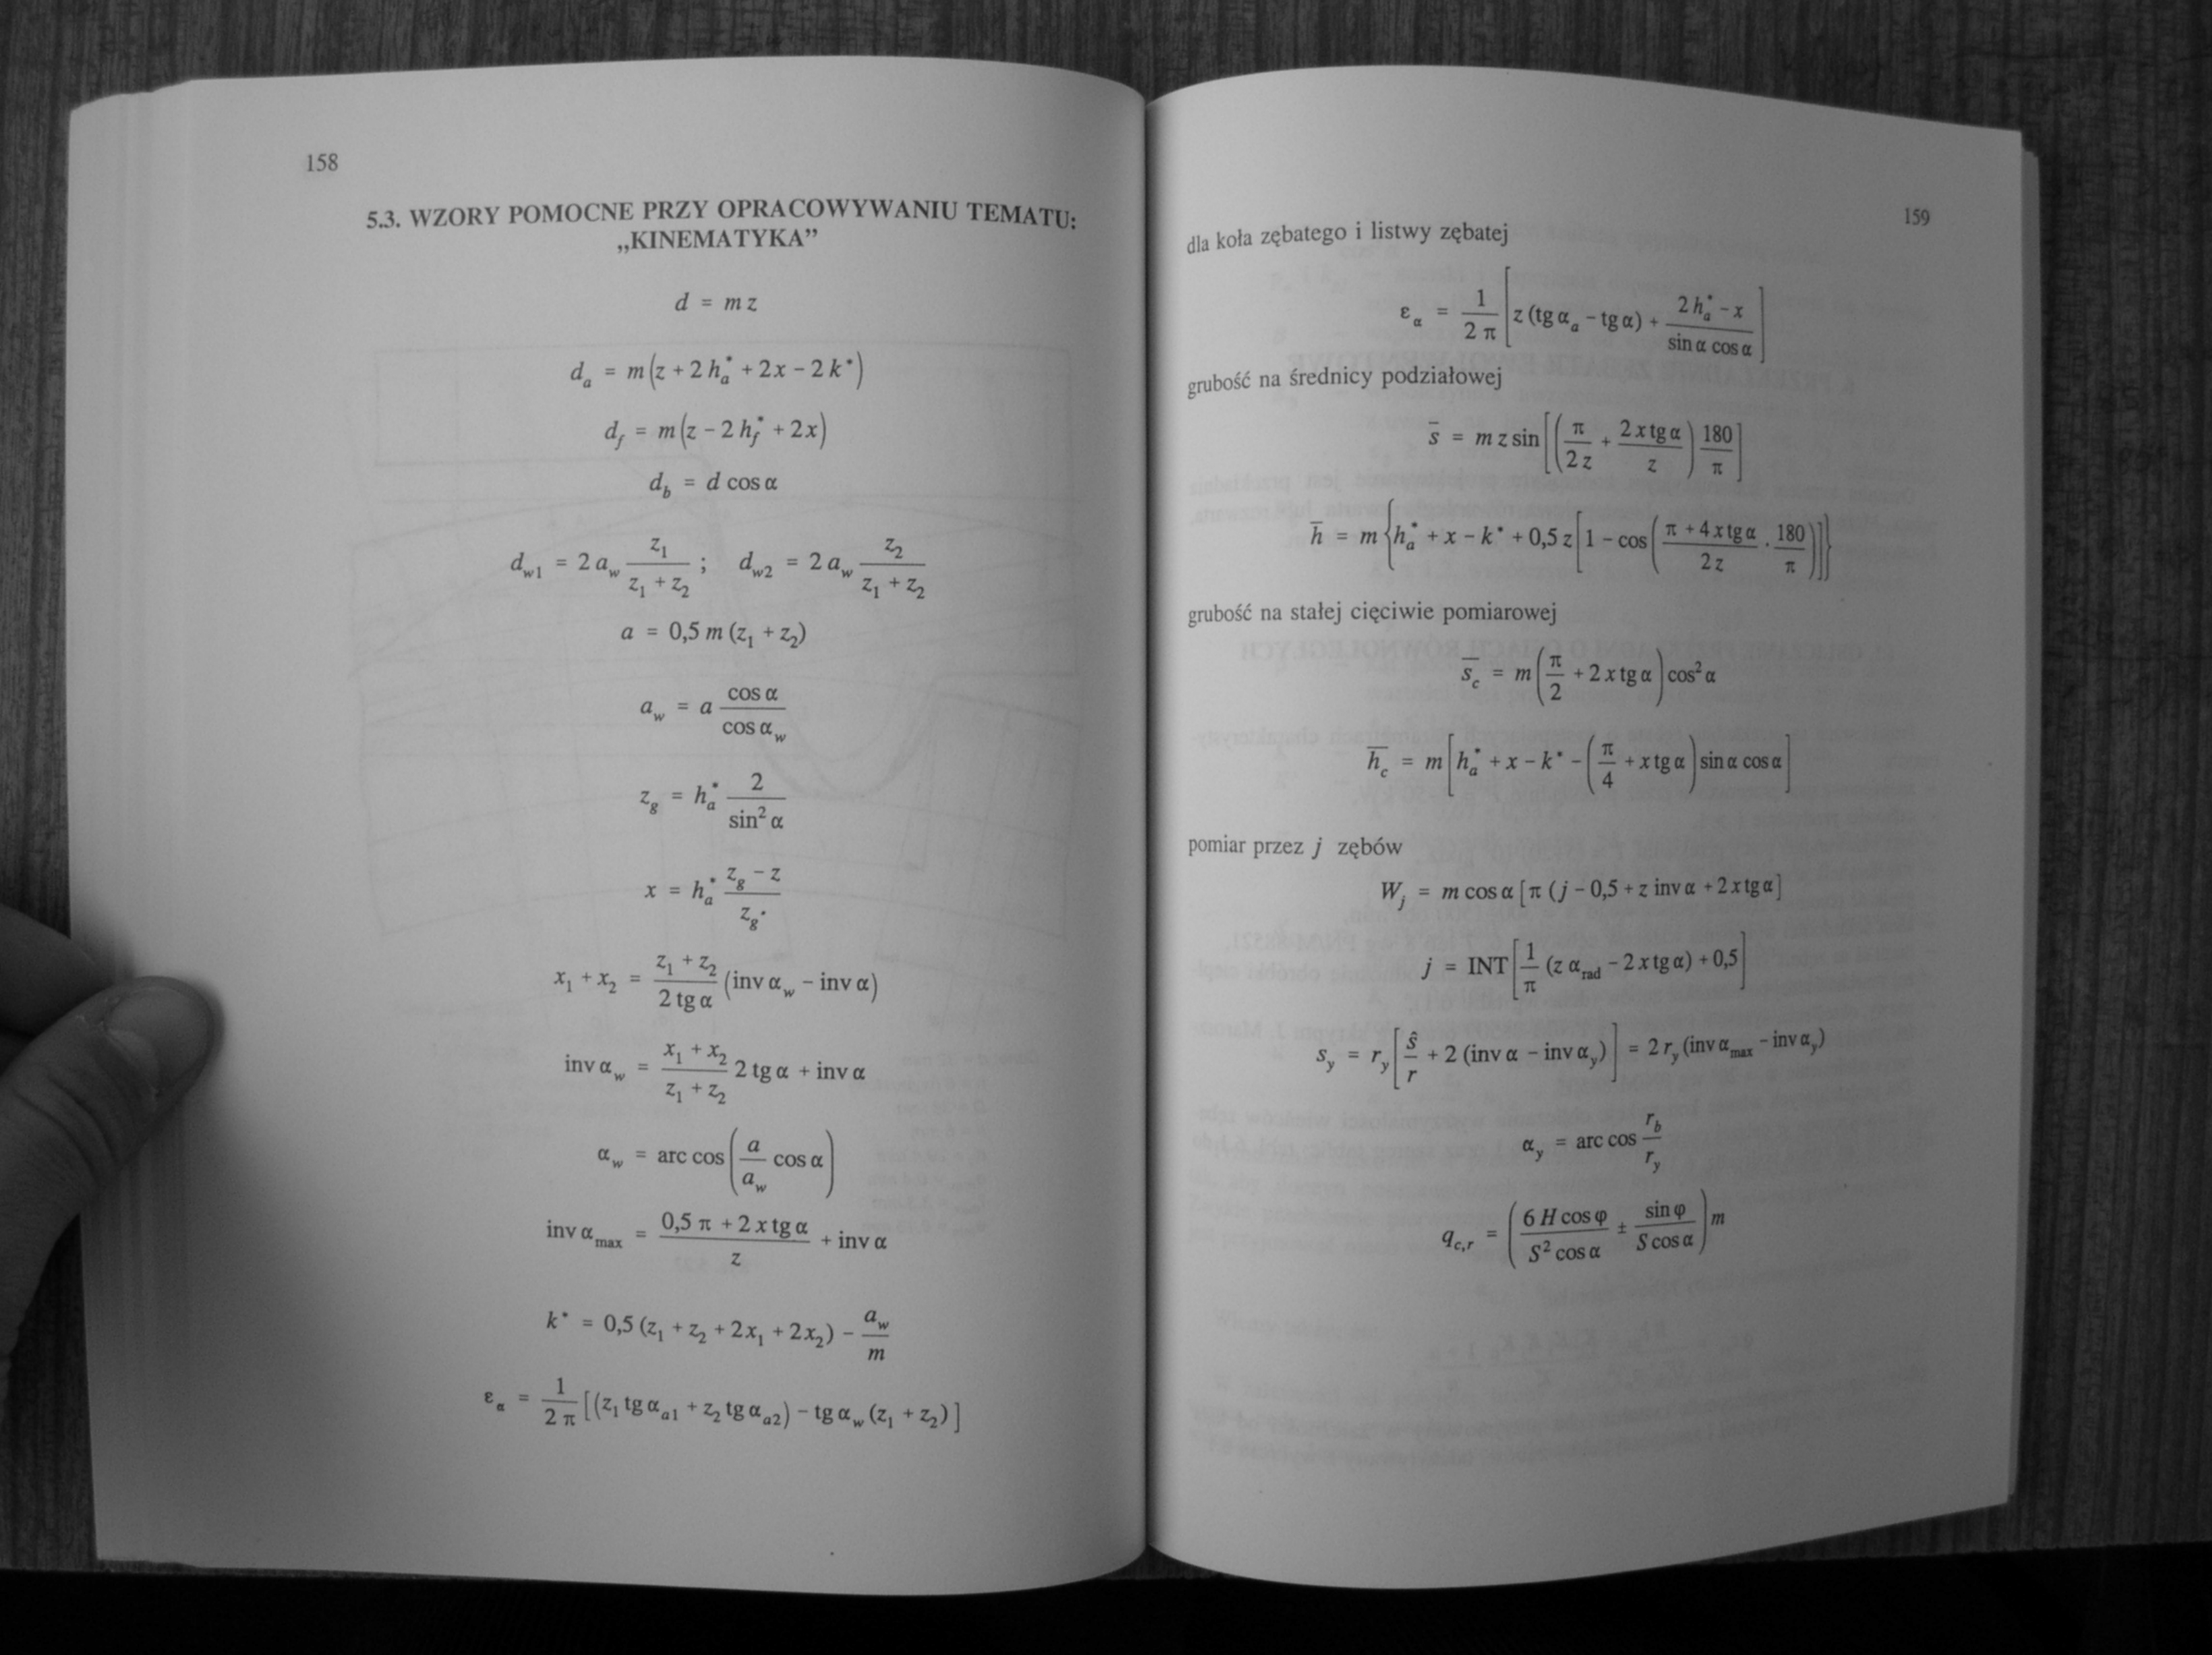 158
5.3. WZORY POMOCNE PRZY OPRACOWYWANIU TEMATU:
„KINEMATYKA”
d = m z
d_a = m (z + 2 h_a^* + 2x − 2 k^*)
d_f = m (z − 2 h_f^* + 2x)
d_b = d cos α
d_w1 = 2 a_w z_1 / (z_1 + z_2) ; d_w2 = 2 a_w z_2 / (z_1 + z_2)
a = 0,5 m (z_1 + z_2)
a_w = a cos α / cos α_w
z_g = h_a^* 2 / sin² α
x = h_a^* (z_g − z) / z_g.
x_1 + x_2 = (z_1 + z_2) / (2 tg α) (inv α_w − inv α)
inv α_w = (x_1 + x_2) / (z_1 + z_2) 2 tg α + inv α
α_w = arc cos (a / a_w cos α)
inv α_max = (0,5 π + 2 x tg α) / z + inv α
k^* = 0,5 (z_1 + z_2 + 2x_1 + 2x_2) − a_w / m
ε_α = 1 / (2 π) [(z_1 tg α_a1 + z_2 tg α_a2) − tg α_w (z_1 + z_2)]
159
dla koła zębatego i listwy zębatej
ε_α = 1 / (2 π) [z (tg α_a − tg α) + (2 h_a^* − x) / (sin α cos α)]
grubość na średnicy podziałowej
s̄ = m z sin [(π / (2 z) + 2 x tg α / z) 180 / π]
h̄ = m {h_a^* + x − k^* + 0,5 z [1 − cos ((π + 4 x tg α) / (2 z) · 180 / π)]}
grubość na stałej cięciwie pomiarowej
s̄_c = m (π / 2 + 2 x tg α) cos² α
h̄_c = m [h_a^* + x − k^* − (π / 4 + x tg α) sin α cos α]
pomiar przez j zębów
W_j = m cos α [π (j − 0,5 + z inv α + 2 x tg α]
j = INT [1 / π (z α_rad − 2 x tg α) + 0,5]
s_y = r_y [ŝ / r + 2 (inv α − inv α_y)] = 2 r_y (inv α_max − inv α_y)
α_y = arc cos r_b / r_y
q_c,r = (6 H cos φ / (S² cos α) ± sin φ / (S cos α)) m